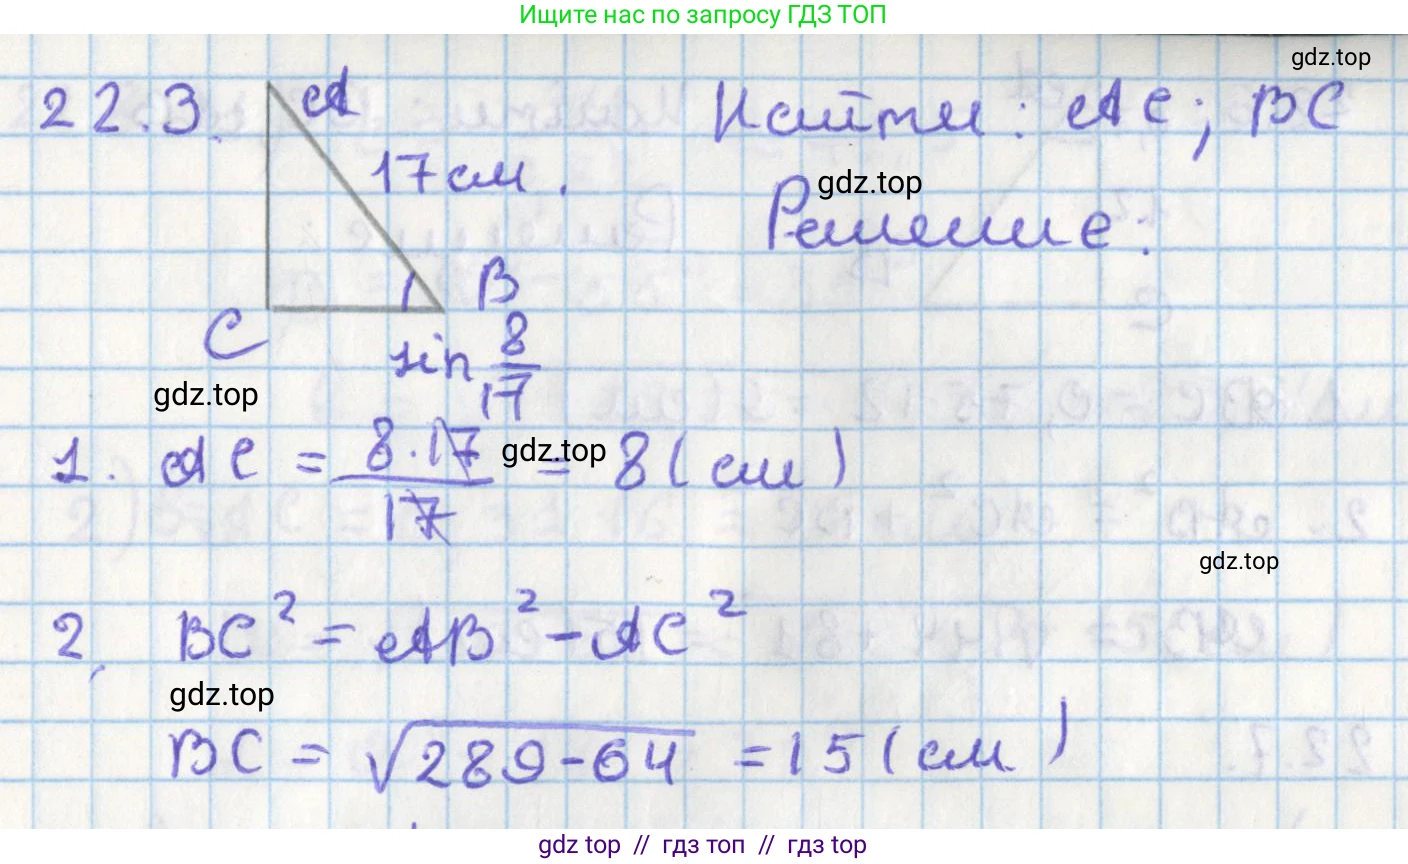 Ищите нас по запросу ГДЗ ТОП
gdz.top
22.3. A Найти: AC; BC
17 см.
gdz.top
Решение:
B
C
sin 8/17
gdz.top
1. AC = 8·17/17 = 8 (см)
gdz.top
gdz.top
2. BC² = AB² - AC²
gdz.top
BC = √289-64 = 15 (см)
gdz.top // гдз топ // гдз.top